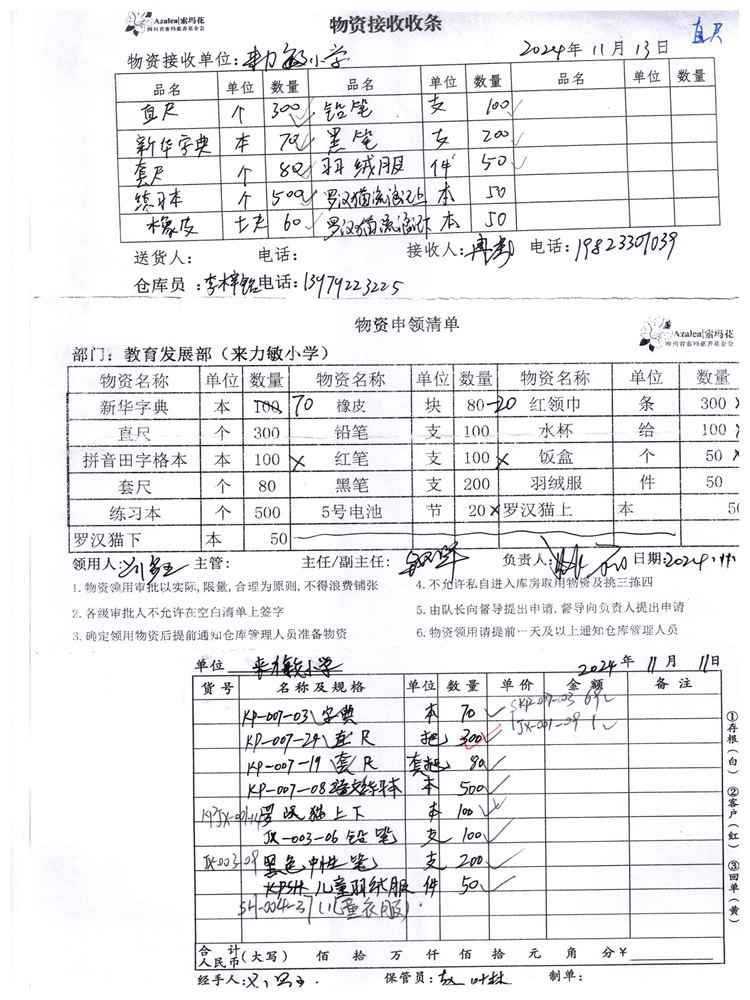 Azalea|索玛花
四川省索玛慈善基金会
物资接收收条
直尺
物资接收单位:来力敏小学 2024年11月13日
品名 单位 数量 品名 单位 数量 品名 单位 数量
直尺 个 300 铅笔 支 100
新华字典 本 70 黑笔 支 200
套尺 个 80 羽绒服 件 50
练习本 个 500 罗汉猫流浪记上 本 50
橡皮 块 60 罗汉猫流浪记下 本 50
送货人: 电话: 接收人: 电话:19823301039
仓库员: 电话:13979223225
物资申领清单
Azalea|索玛花
四川省索玛慈善基金会
部门:教育发展部(来力敏小学)
物资名称 单位 数量 物资名称 单位 数量 物资名称 单位 数量
新华字典 本 100 70 橡皮 块 80-20 红领巾 条 300 x
直尺 个 300 铅笔 支 100 水杯 给 100 x
拼音田字格本 本 100 x 红笔 支 100 x 饭盒 个 50 x
套尺 个 80 黑笔 支 200 羽绒服 件 50
练习本 个 500 5号电池 节 20 x 罗汉猫上 本 50
罗汉猫下 本 50
领用人: 主管: 主任/副主任: 负责人: 日期:2024.11.
1.物资领用审批以实际,限量,合理为原则,不得浪费铺张 4.不允许私自进入库房取用物资及挑三拣四
2.各级审批人不允许在空白清单上签字 5.由队长向督导提出申请,督导向负责人提出申请
3.确定领用物资后提前通知仓库管理人员准备物资 6.物资领用请提前一天及以上通知仓库管理人员
单位 来力敏小学 2024年11月11日
货号 名称及规格 单位 数量 单价 金额 备注
KP-007-03 字典 本 70 KP-007-03 69
KP-007-29 直尺 把 300 JX-001-09 1
KP-007-19 套尺 套 80
KP-007-08 练本 本 500
罗汉猫上下 本 100
JX-003-06 铅笔 支 100
JX-003-09 黑色中性笔 支 200
儿童羽绒服 件 50
SH-004-37(儿童衣服)
合计人民币(大写) 佰 拾 万 仟 佰 拾 元 角 分 ¥
经手人: 保管员: 制单:
①存根(白) ②客户(红) ③回单(黄)